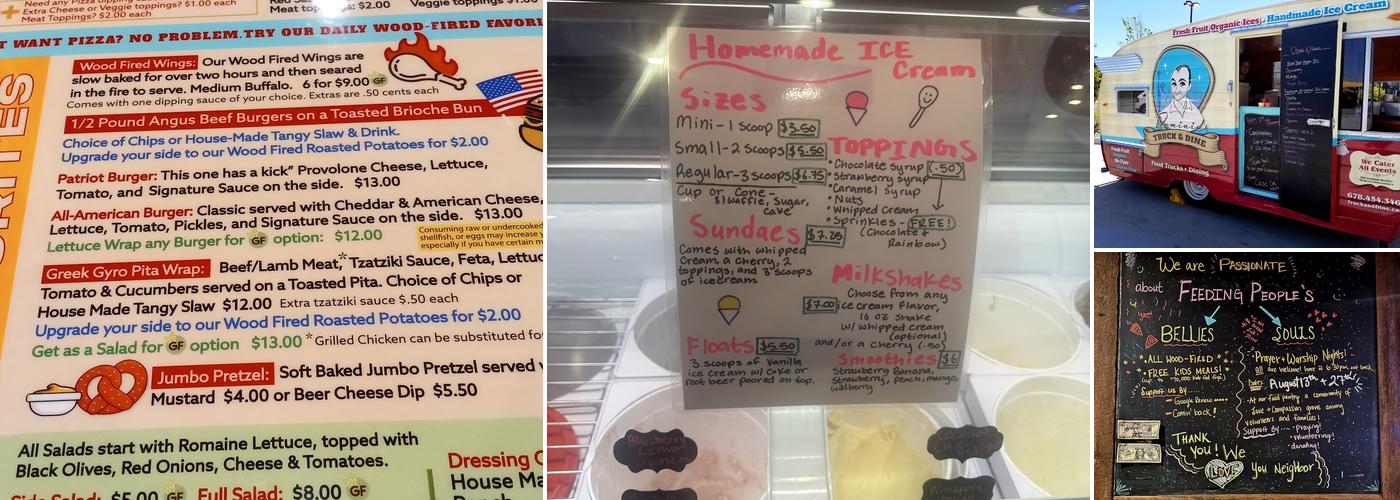 Need any Pizza
Extra Cheese or Veggie toppings? $1.00 each
Meat toppings? $2.00 each
Meat toppings: $2.00
Veggie toppings $1.00
T WANT PIZZA? NO PROBLEM.TRY OUR DAILY WOOD-FIRED FAVORI
RITES
Wood Fired Wings: Our Wood Fired Wings are
slow baked for over two hours and then seared
in the fire to serve. Medium Buffalo. 6 for $9.00 GF
Comes with one dipping sauce of your choice. Extras are .50 cents each
1/2 Pound Angus Beef Burgers on a Toasted Brioche Bun
Choice of Chips or House-Made Tangy Slaw & Drink.
Upgrade your side to our Wood Fired Roasted Potatoes for $2.00
Patriot Burger: This one has a kick" Provolone Cheese, Lettuce,
Tomato, and Signature Sauce on the side. $13.00
All-American Burger: Classic served with Cheddar & American Cheese,
Lettuce, Tomato, Pickles, and Signature Sauce on the side. $13.00
Lettuce Wrap any Burger for GF option: $12.00
Consuming raw or undercooked
shellfish, or eggs may increase y
especially if you have certain m
Greek Gyro Pita Wrap: Beef/Lamb Meat,* Tzatziki Sauce, Feta, Lettuc
Tomato & Cucumbers served on a Toasted Pita. Choice of Chips or
House Made Tangy Slaw $12.00 Extra tzatziki sauce $.50 each
Upgrade your side to our Wood Fired Roasted Potatoes for $2.00
Get as a Salad for GF option $13.00 *Grilled Chicken can be substituted fo
Jumbo Pretzel: Soft Baked Jumbo Pretzel served w
Mustard $4.00 or Beer Cheese Dip $5.50
All Salads start with Romaine Lettuce, topped with
Black Olives, Red Onions, Cheese & Tomatoes.
Side Salad: $5.00 GF Full Salad: $8.00 GF
Dressing
House Ma
Ranch
Homemade ICE
Cream
Sizes
Mini-1 Scoop $3.50
Small-2 Scoops $5.50
Regular-3 scoops $6.75
Cup or Cone-
$1 Waffle, Sugar,
Cake
TOPPINGS
Chocolate Syrup (.50)
Strawberry Syrup
Caramel Syrup
Nuts
Whipped Cream
Sprinkles - FREE!
(Chocolate &
Rainbow)
Sundaes $7.25
Comes with whipped
Cream, a Cherry, 2
toppings, and 3 scoops
of icecream.
Milkshakes
$7.00 Choose from any
ice cream flavor,
16 oz Shake
w/ whipped cream
(optional)
and/or a cherry (.50)
Floats $5.50
3 scoops of Vanilla
ice cream w/ Coke or
root beer poured on top.
Smoothies $6
Strawberry Banana,
Strawberry, peach, mango,
wildberry
Blueberry
Lemon
Fresh Fruit Organic Ices • Handmade Ice Cream
TRUCK & DINE
Food Trucks • Dining
Fresh Fruit
Organic
No Dyes
We Cater
All Events
678.454.346
TruckandDine.co
We are PASSIONATE
about FEEDING PEOPLE'S
BELLIES
SOULS
ALL WOOD-FIRED
FREE KIDS MEALS!
Support us by...
Google Review
Comin' back!
Prayer + Worship Nights!
All are welcome here
August 13th + 27th
At our food pantry a community of
love + compassion grows among
volunteers and families!
Support By... Praying!
volunteering!
donating!
THANK
you! We
LOVE
You Neighbor!